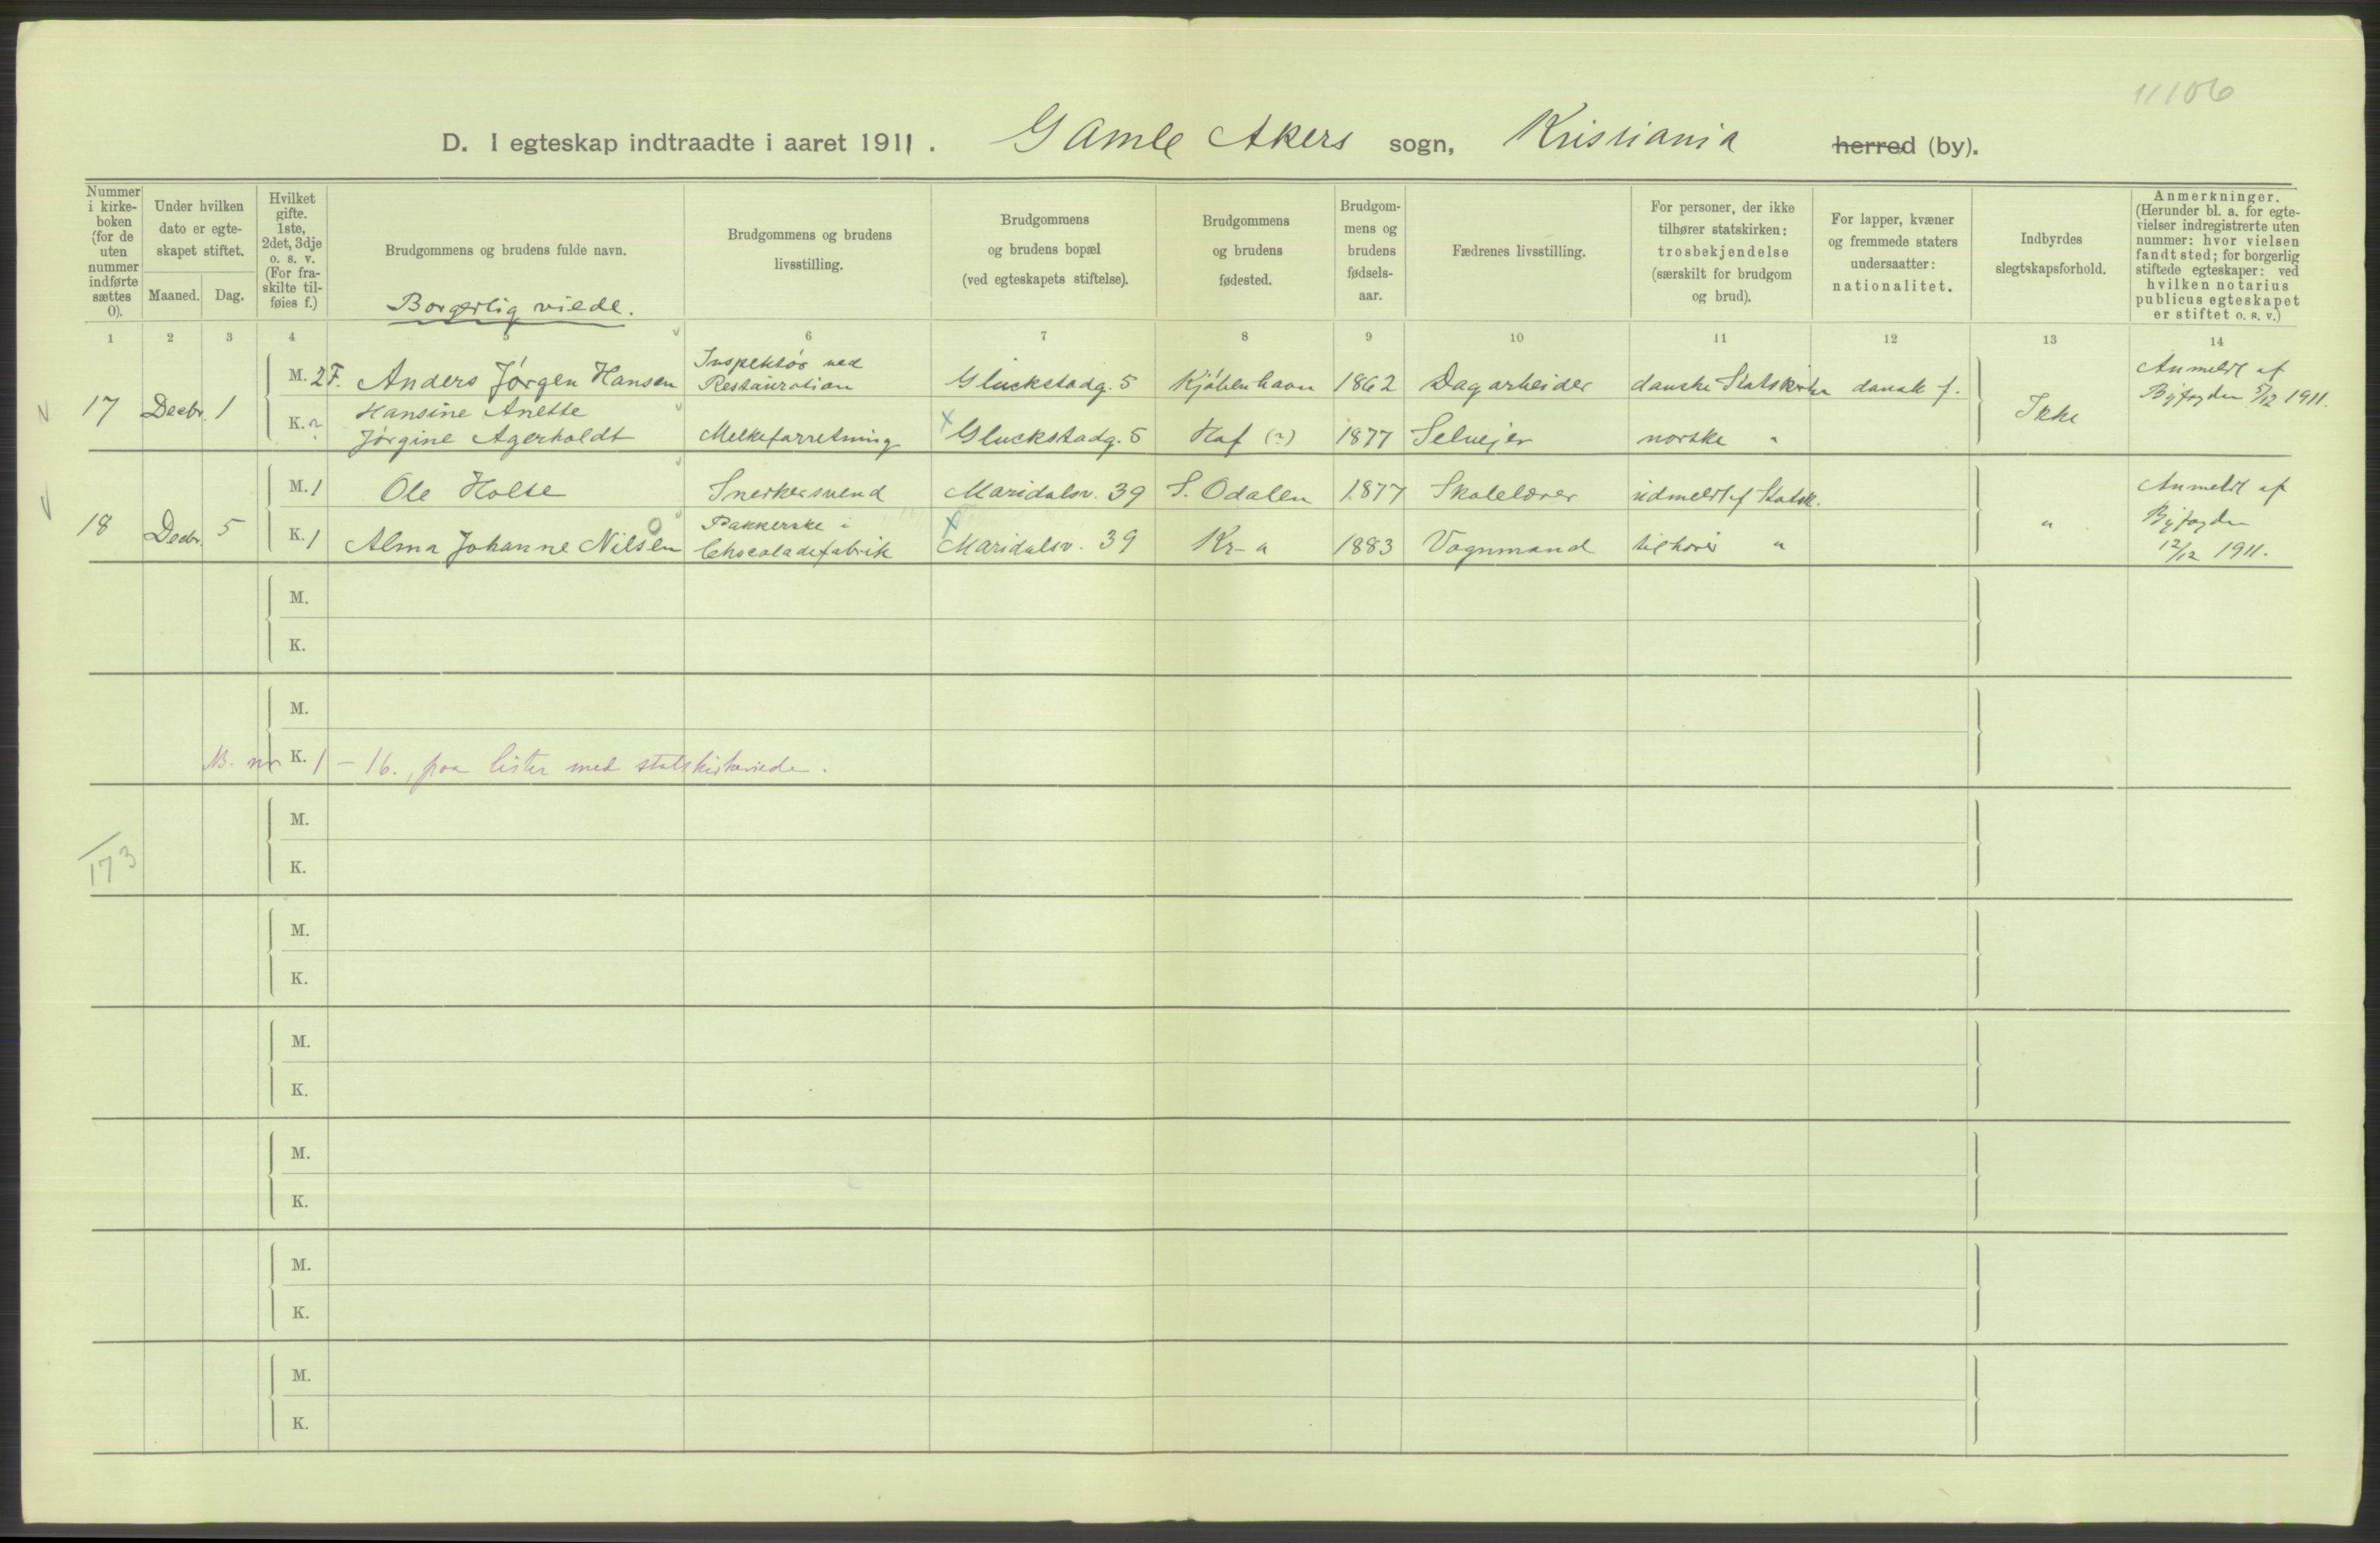 11106
D. I egteskap indtraadte i aaret 1911. Gamle Akers sogn, Kristiania herred (by).
Nummer i kirke-boken (for de uten nummer indførte sættes 0).
Under hvilken dato er egte-skapet stiftet.
Maaned. Dag.
Hvilket gifte. 1ste, 2det, 3dje o. s. v. (For fra-skilte til-føies f.)
Brudgommens og brudens fulde navn.
Borgerlig viede.
Brudgommens og brudens livsstilling.
Brudgommens og brudens bopæl (ved egteskapets stiftelse).
Brudgommens og brudens fødested.
Brudgom-mens og brudens fødsels-aar.
Fædrenes livsstilling.
For personer, der ikke tilhører statskirken: trosbekjendelse (særskilt for brudgom og brud).
For lapper, kvæner og fremmede staters undersaatter: nationalitet.
Indbyrdes slegtskapsforhold.
Anmerkninger. (Herunder bl. a. for egte-vielser indregistrerte uten nummer: hvor vielsen fandt sted; for borgerlig stiftede egteskaper: ved hvilken notarius publicus egteskapet er stiftet o. s. v.)
1 2 3 4 5 6 7 8 9 10 11 12 13 14
17 Decbr. 1
M. 2F. Anders Jørgen Hansen Inspektør ved Restauration Gluckstadg. 5 Kjøbenhavn 1862 Dagarbeider danske Statskirke dansk f.
K. 2 Hansine Anette Jørgine Agerholdt Melkeforretning Gluckstadg. 5 Haf (?) 1877 Selvejer norske "
Ikke
Anmeldt af Byfogden 5/12 1911.
18 Decbr. 5
M. 1 Ole Holte Snerkersvend Maridalsv. 39 S. Odalen 1877 Skolelærer udmeldt af Statsk.
K. 1 Alma Johanne Nilsen Pakkerske i Chocoladefabrik Maridalsv. 39 Kr-a 1883 Vognmand tilhører "
"
Anmeldt af Byfogden 12/12 1911.
M.
K.
M.
K.
NB. nr 1 - 16., paa lister med statskirkeviede.
M.
K.
173
M.
K.
M.
K.
M.
K.
M.
K.
M.
K.